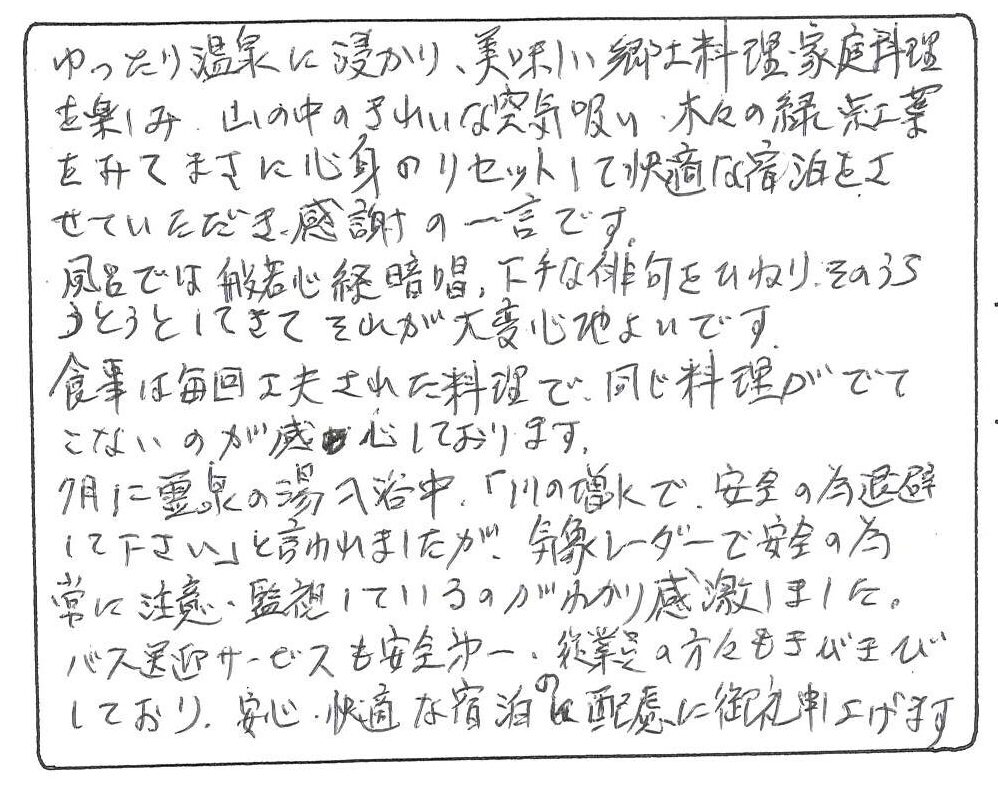 ゆったり温泉に浸かり、美味しい郷土料理・家庭料理
を楽しみ、山の中のきれいな空気吸い、木々の緑、紅葉
をみてまさに心身のリセットして快適な宿泊をさ
せていただき、感謝の一言です。
風呂では般若心経暗唱、下手な俳句をひねり、そのうち
うとうとしてきてそれが大変心地よいです。
食事は毎回工夫された料理で、同じ料理がでて
こないのが感心しております。
7月に霊泉の湯入浴中、「川の増水で、安全の為退避
して下さい」と言われましたが、気象レーダーで安全の為
常に注意、監視しているのがわかり感激しました。
バス送迎サービスも安全第一、従業員の方々もきびきび
しており、安心・快適な宿泊の配慮に御礼申し上げます